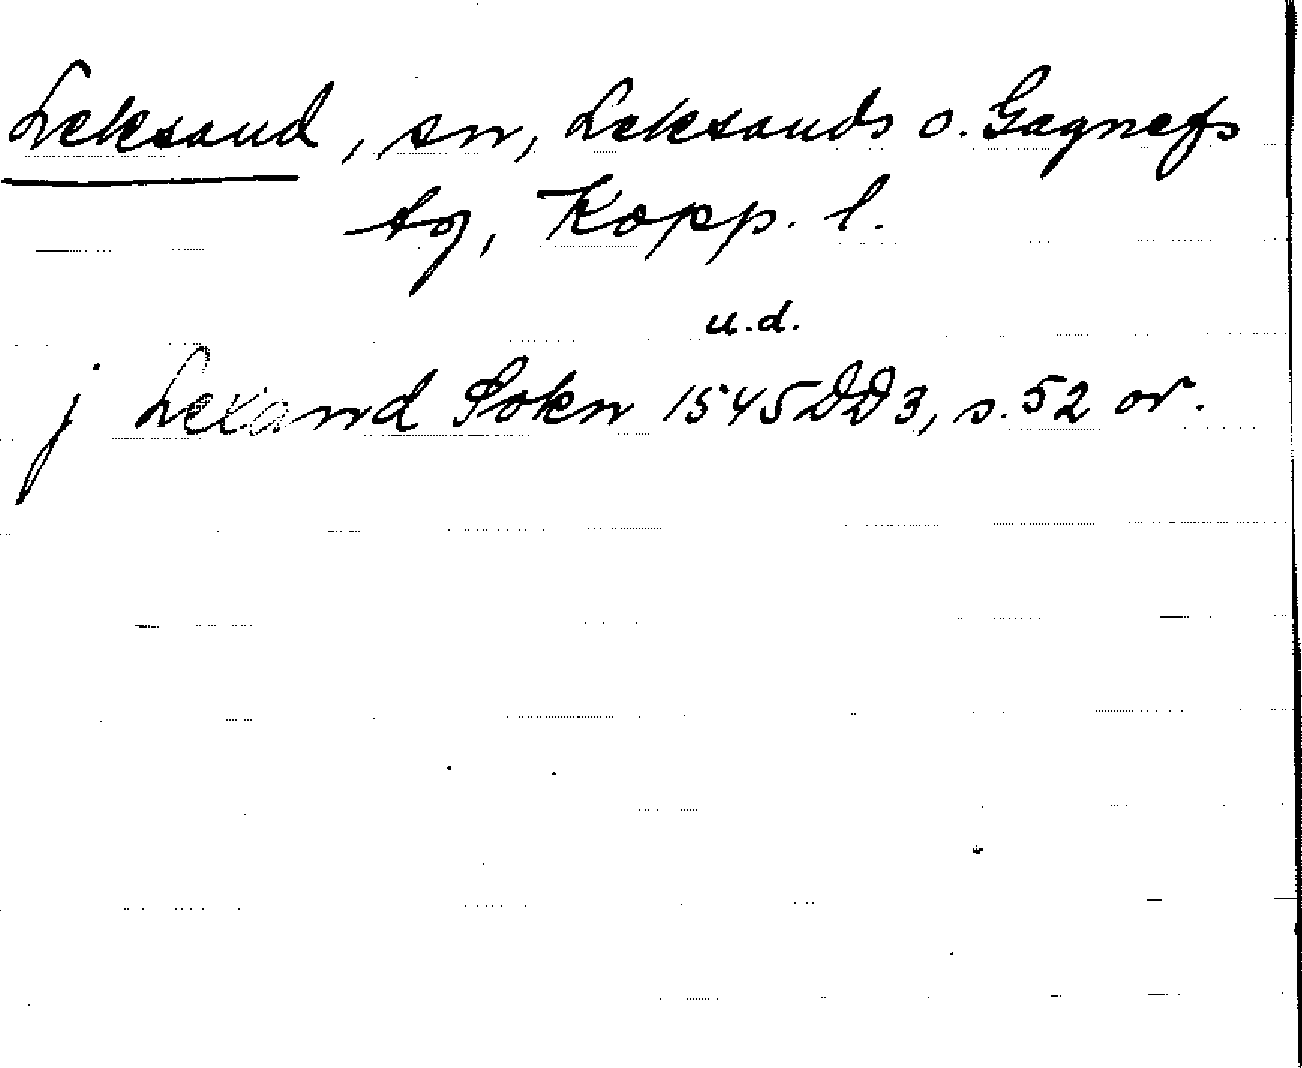 Leksand, sn, Leksands o. Gagnefs
tg, Kopp. l.
u.d.
j Lexand Sokn 1545 DD3, s. 52 or.